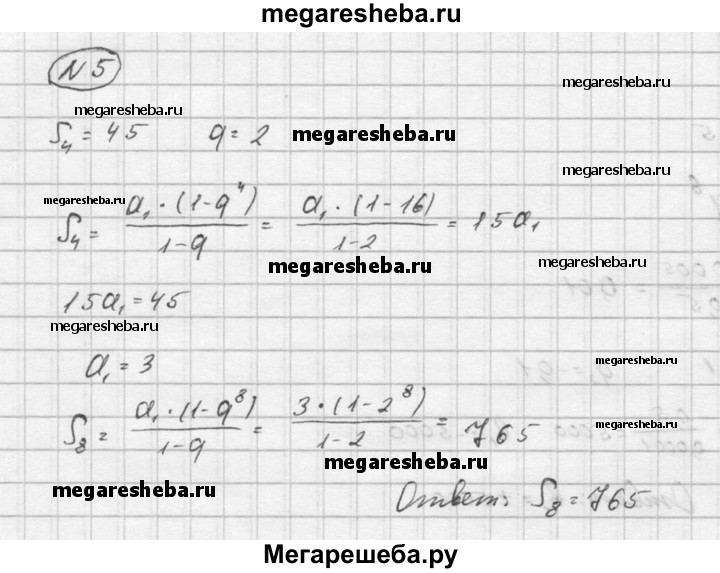 megaresheba.ru
N 5
megaresheba.ru
megaresheba.ru
S₄ = 45 q = 2 megaresheba.ru
megaresheba.ru
megaresheba.ru
S₄ = a₁ · (1 - q⁴) / 1 - q = a₁ · (1 - 16) / 1 - 2 = 15a₁
megaresheba.ru
megaresheba.ru
15a₁ = 45
megaresheba.ru
a₁ = 3
megaresheba.ru
S₈ = a₁ · (1 - q⁸) / 1 - q = 3 · (1 - 2⁸) / 1 - 2 = 765
megaresheba.ru
megaresheba.ru
megaresheba.ru
Ответ: S₈ = 765
Мегарешеба.ру